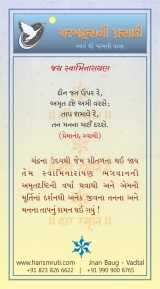 પરમહંસની પ્રસાદી
સ્વયં શ્રી પરમની વાણી
જય સ્વામિનારાયણ
દીન જન ઉપર રે,
અમૃત દૃષ્ટે અમી વરસે;
તાપ શમાવે રે,
તન મનના માંઈ દરસે.
(પ્રેમાનંદ સ્વામી)
ચંદ્રના ઉદયથી જેમ શીતળતા થઈ જાય
તેમ સ્વામિનારાયણ ભગવાનની
અમૃતદૃષ્ટિની વર્ષા થવાથી અને એમની
મૂર્તિનાં દર્શનથી અનેક જીવના તનના અને
મનના તાપનું શમન થઈ ગયું !
www.harismruti.com
Jnan Baug - Vadtal
+91 823 826 6622
+91 990 900 6765